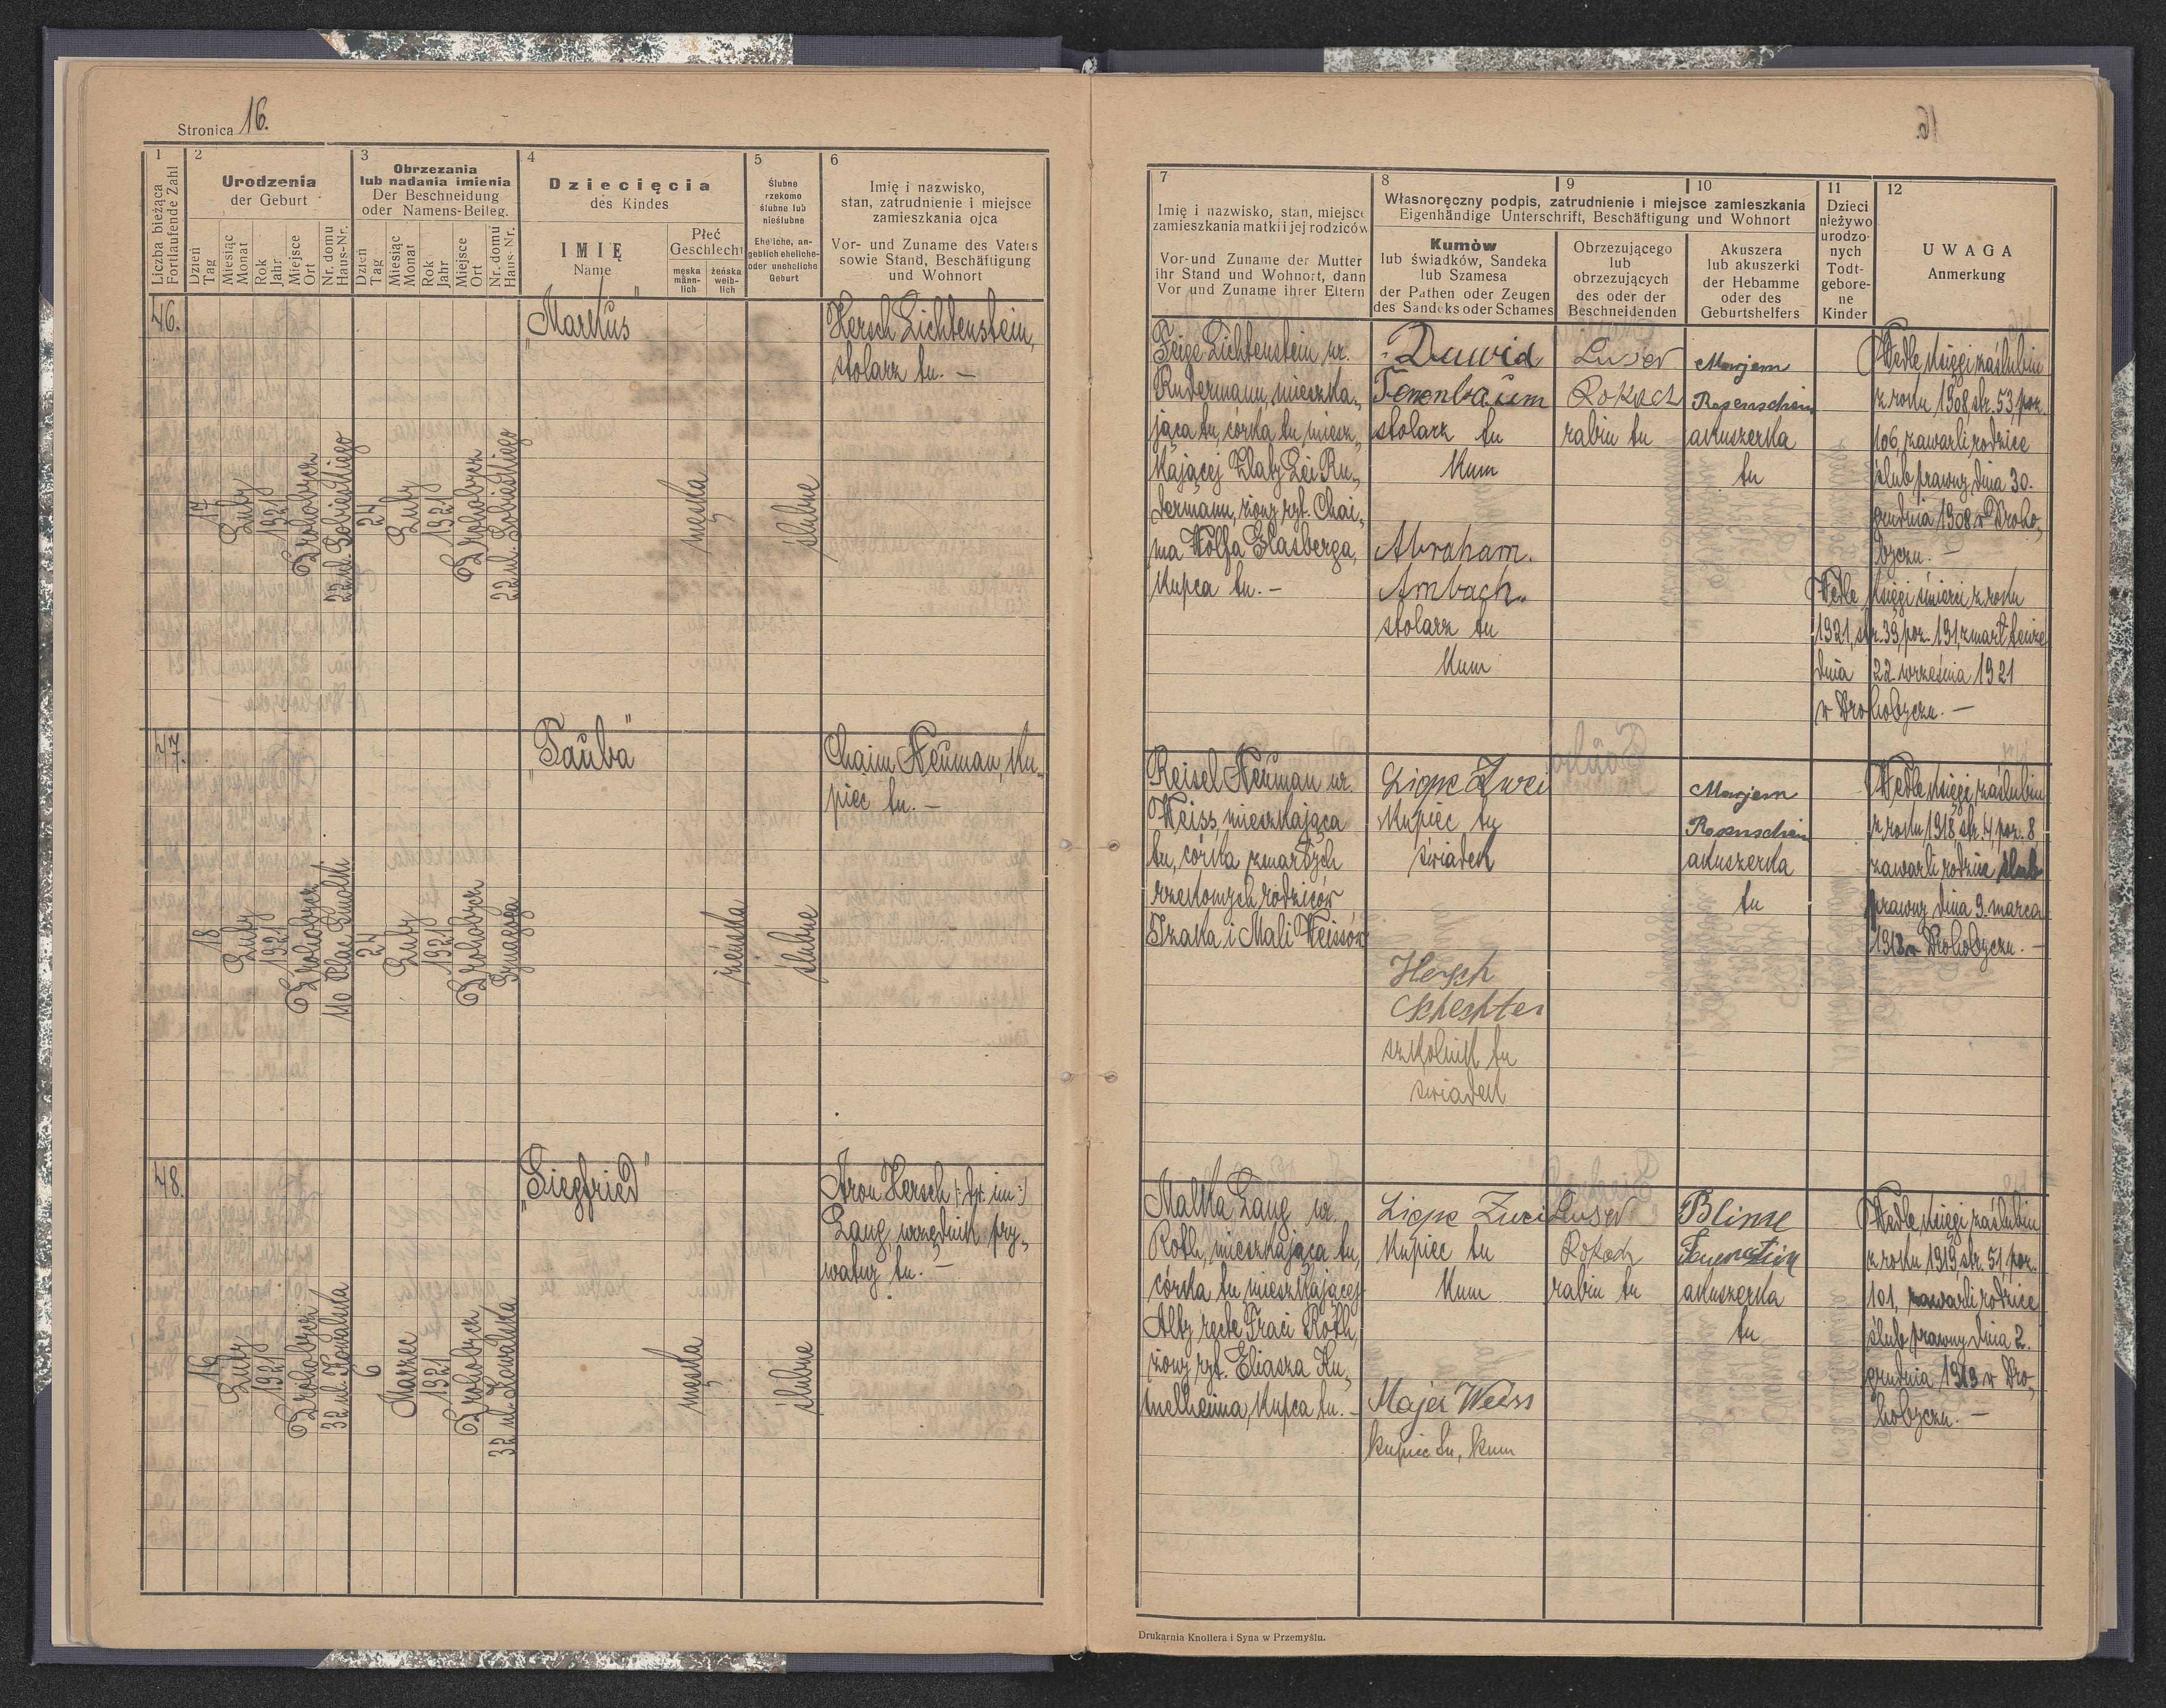 Stronica 16.
1
Liczba bieżąca
Fortlaufende Zahl
2
Urodzenia
der Geburt
Dzień
Tag
Miesiąc
Monat
Rok
Jahr
Miejsce
Ort
Nr. domu
Haus-Nr.
3
Obrzezania
lub nadania imienia
Der Beschneidung
oder Namens-Beileg.
Dzień
Tag
Miesiąc
Monat
Rok
Jahr
Miejsce
Ort
Nr. domu
Haus-Nr.
4
Dziecięcia
des Kindes
IMIĘ
Name
Płeć
Geschlecht
męska
männ-
lich
żeńska
weib-
lich
5
Ślubne
rzekomo
ślubne lub
nieślubne
Eheliche, an-
geblich eheliche-
oder uneheliche
Geburt
6
Imię i nazwisko,
stan, zatrudnienie i miejsce
zamieszkania ojca
Vor- und Zuname des Vaters
sowie Stand, Beschäftigung
und Wohnort
46.
17
Luty
1921
Drohobycz
22 ul. Sobieskiego
24
Luty
1921
Drohobycz
22 ul. Sobieskiego
„Markus"
męska
ślubne
Hersch Lichtenstein,
stolarz tu. —
47.
18
Luty
1921
Drohobycz
110 Plac Smolki
24
Luty
1921
Drohobycz
Synagoga
„Tauba"
żeńska
ślubne
Chaim Neuman, ku„
piec tu. —
48.
16
Luty
1921
Drohobycz
32 ul. Kowalska
6
Marzec
1921
Drohobycz
32 ul. Kowalska
„Siegfried"
męska
ślubne
Aron Hersch /: dw. im :/
Lang, urzędnik pry„
watny tu. —
16.
7
Imię i nazwisko, stan, miejsce
zamieszkania matki i jej rodziców
Vor-und Zuname der Mutter
ihr Stand und Wohnort, dann
Vor und Zuname ihrer Eltern
8
9
10
Własnoręczny podpis, zatrudnienie i miejsce zamieszkania
Eigenhändige Unterschrift, Beschäftigung und Wohnort
Kumów
lub świadków, Sandeka
lub Szamesa
der Pathen oder Zeugen
des Sandeks oder Schames
Obrzezującego
lub
obrzezujących
des oder der
Beschneidenden
Akuszera
lub akuszerki
der Hebamme
oder des
Geburtshelfers
11
Dzieci
nieżywo
urodzo-
nych
Todt-
gebore-
ne
Kinder
12
UWAGA
Anmerkung
Feige Lichtenstein ur.
Rudermann, mieszka„
jąca tu, córka tu miesz„
kającej Zlaty Lei Ru„
dermann, żony ryt. Chai„
ma Wolfa Glasberga,
kupca tu. —
Dawid
Tenenbaum
stolarz tu
Kum
Abraham.
Ambach.
stolarz tu
Kum
Luser
Rokach
rabin tu
Marjem
Rosenschein
akuszerka
tu
Wedle księgi zaślubin
z roku 1908, str. 53, poz.
106, zawarli rodzice
ślub prawny dnia 30.
grudnia 1908 w Droho„
byczu. —
Wedle księgi śmierci z roku
1921, str. 39, poz. 191, zmarł tenże
dnia 22 września 1921
w Drohobyczu. —
Reisel Neuman ur.
Weiss mieszkająca
tu, córka zmarłych
rzekomych rodziców
Izaka i Mali Weissów
Lippe Zwei
Kupiec tu
świadek
Hersch
Schechter
szkolnik tu
świadek
Marjem
Rosenschein
akuszerka
tu
Wedle księgi zaślubin
z roku 1918 str. 4 poz. 8
zawarli rodzice ślub
prawny dnia 9. marca
1918 w Drohobyczu. —
Malka Lang ur.
Roth, mieszkająca tu,
córka tu mieszkającej
Alty recte Fraci Roth,
żony ryt. Eliasza
kupca tu. —
Lippe Zwei
Kupiec tu
Kum
Majer Weiss
kupiec tu, kum
Luser
Rokach
rabin tu
Blime
akuszerka
tu
Wedle księgi zaślubin
z roku 1919, str. 51, poz.
101, zawarli rodzice
ślub prawny dnia 2.
grudnia 1919 w Dro„
hobyczu. —
Drukarnia Knollera i Syna w Przemyślu.